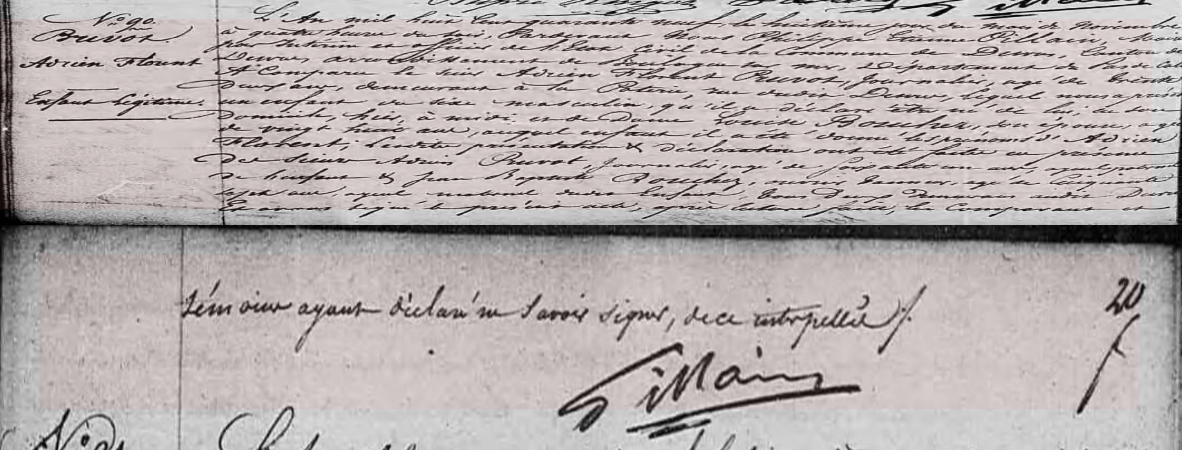 N° 90.
Buvot
Adrien Florent
Enfant légitime.
L'An mil huit cent quarante neuf, le huitième jour du mois de Novembre
à quatre heures du soir, Pardevant Nous Philippe Etienne Pillain, Maire
par interim et officier de l'Etat Civil de la Commune de Desvres, Canton de
Desvres, arrondissement de Boulogne sur mer, Département du Pas de Calais
A Comparu le sieur Adrien Florent Buvot, Journalier, agé de trente
deux ans, demeurant à la Poterie, rue dudit Desvres, lequel nous a présenté
un enfant du sexe masculin, qu'il a déclaré être né de lui, en son
domicile, hier, à midi et de Dame Louise Bouchez, son épouse, agée
de vingt huit ans, auquel enfant il a été donné les prénoms d'Adrien
Florent; Lesdites présentation & déclaration ont été faites en présence
des sieurs Adrien Buvot, Journalier, agé de soixante un ans, ayeul paternel
de l'enfant & Jean Baptiste Bouchez, ouvrier tanneur, agé de cinquante
sept ans, ayeul maternel dudit Enfant, tous deux demeurant audit Desvres
Et avons signé le présent acte, après lecture faite, les Comparant et
témoins ayant déclaré ne savoir signer, de ce interpellés /.
20
Pillain
N° 91